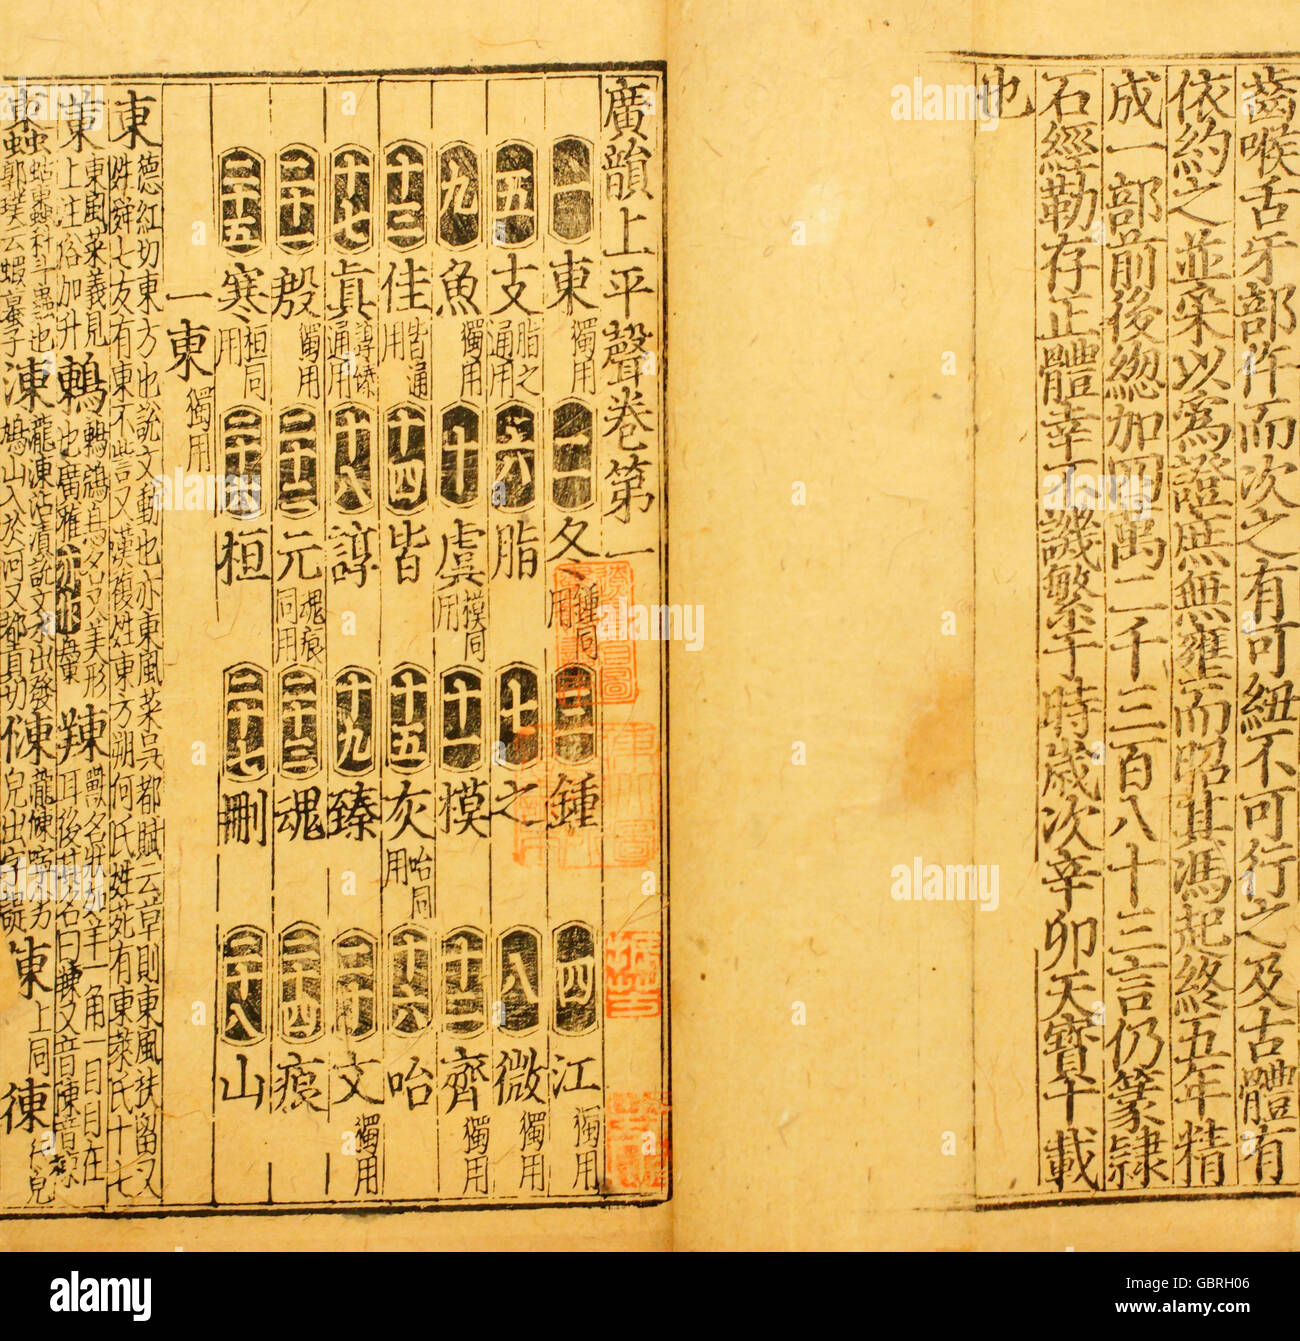 齒喉舌牙部仵而次之有可紐不可行之及古體有
依約之並采以爲證庶無壅而昭其馮起終五年精
成一部前後緫加四萬二千三百八十三言仍篆隷
石經勒存正體幸不譏繁于時歲次辛卯天寶十載
也
廣韻上平聲卷第一
一東獨用 二冬鍾同用 三鍾 四江獨用
五支脂之通用 六脂 七之 八微獨用
九魚獨用 十虞模同用 十一模 十二齊獨用
十三佳皆通用 十四皆 十五灰咍同用 十六咍
十七眞諄臻通用 十八諄 十九臻 二十文獨用
二十一殷獨用 二十二元魂痕同用 二十三魂 二十四痕
二十五寒桓同用 二十六桓 二十七刪 二十八山
一東獨用
東德紅切東方也說文動也亦東風菜吳都賦云草則東風扶留又
姓舜七友有東不訾又漢複姓東方朔何氏姓苑有東萊氏十七
菄東風菜義見上注俗加艹 鶇鶇鵍鳥名又美形也廣雅 䍶獸名狀如羊一角一目目在耳後其名曰䍶又音陳音
蝀 科斗蟲也郭璞云蝦蟇子 涷瀧涷沾漬說文水出發鳩山入於河又都貢切 倲儱倲儜劣皃出字諟 上同 徚行皃
alamy
Image ID: GBRH06
www.alamy.com